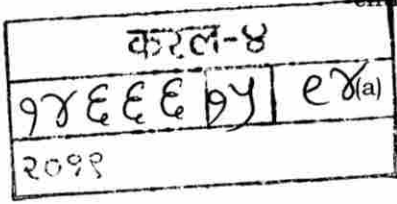 करल-४
१४६६६ १५ ९४(a)
२०१९